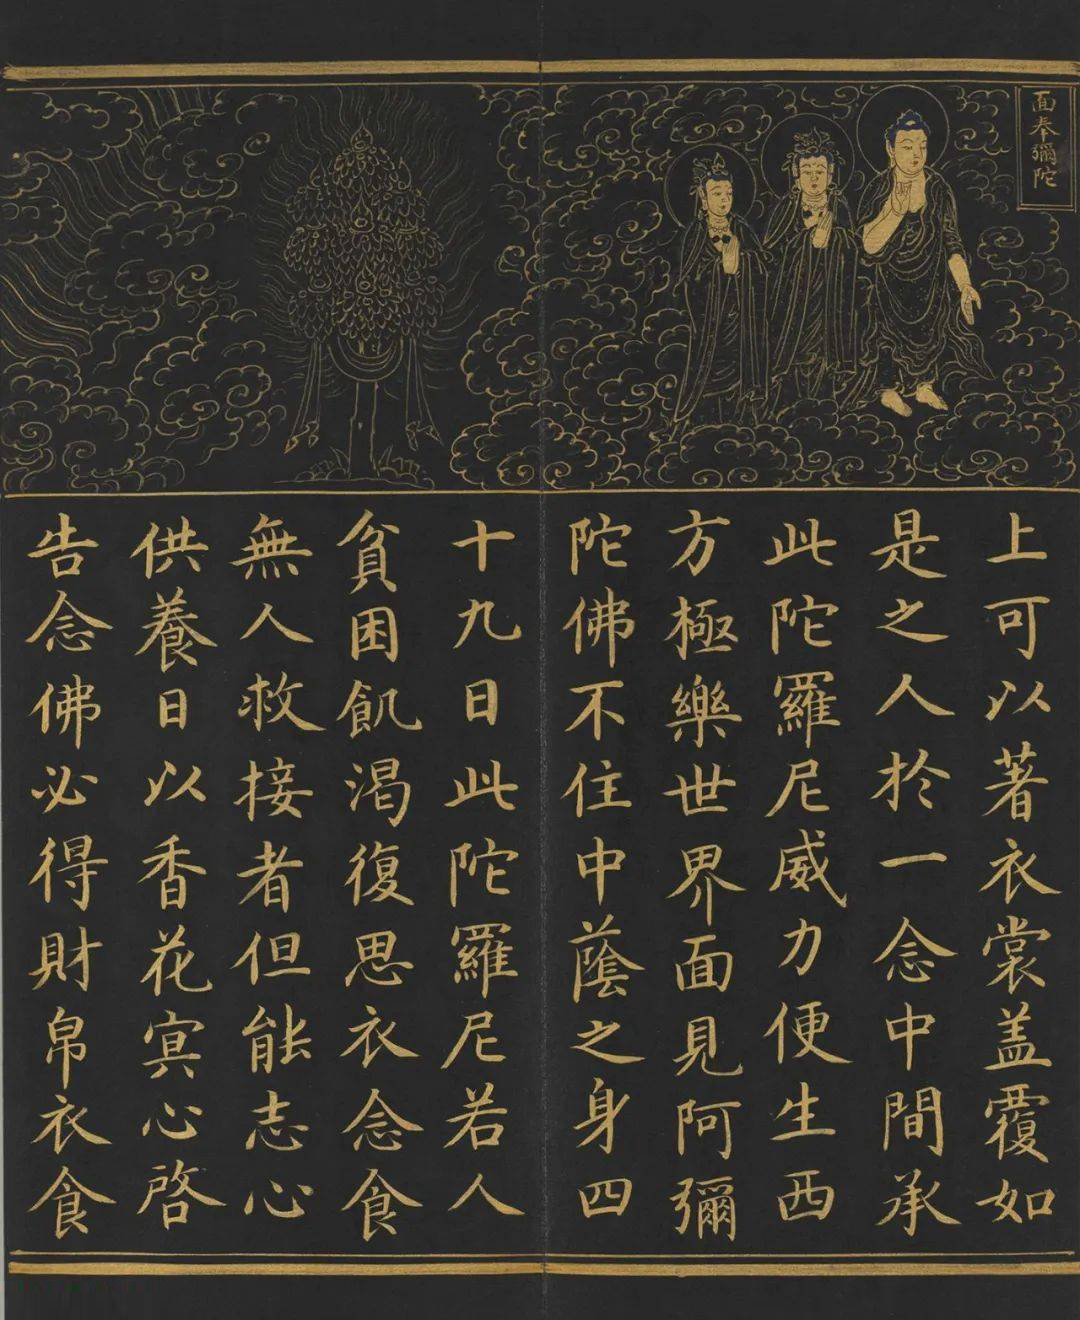 面奉彌陀
上可以著衣裳盖覆如
是之人於一念中間承
此陀羅尼威力便生西
方極樂世界面見阿彌
陀佛不住中蔭之身四
十九日此陀羅尼若人
貧困飢渴復思衣念食
無人救接者但能志心
供養日以香花冥心啓
告念佛必得財帛衣食